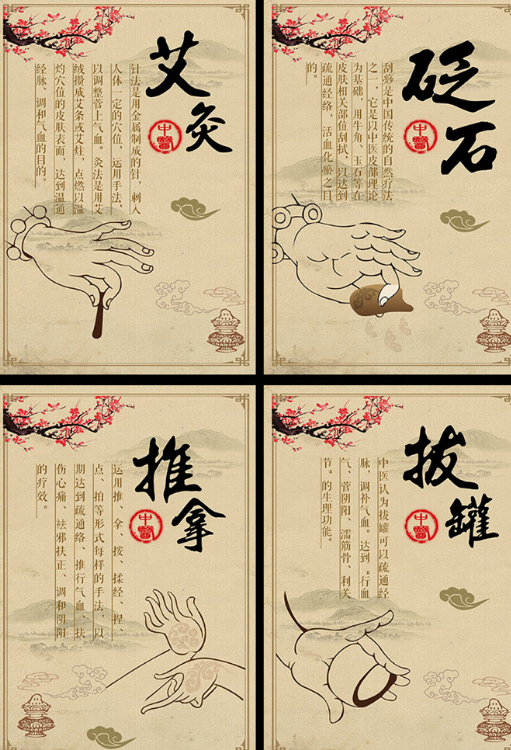 艾灸
中醫
针法是用金属制成的针，刺入
人体一定的穴位，运用手法，
以调整营上气血。灸法是用艾
绒搬成艾条或艾炷，点燃以温
灼穴值的皮肤表面，达到温通
经脉、调和气血的目的。
砭石
中醫
刮痧是中国传统的自然疗法
之一，它是以中医皮部理论
为基础，用牛角、玉石等在
皮肤相关部位刮拭，以达到
疏通经络，活血化瘀之目
的。
推拿
中醫
运用推、拿、按、揉经、捏
点、拍等形式每样的手法，以
期达到疏通络、推行气血、扶
伤心痛、祛邪扶正、调和阴阳
的疗效。
拔罐
中醫
中医认为拔罐可以疏通经
脉，调补气血。达到"行血
气、营阴阳、濡筋骨、利关
节。的生理功能。